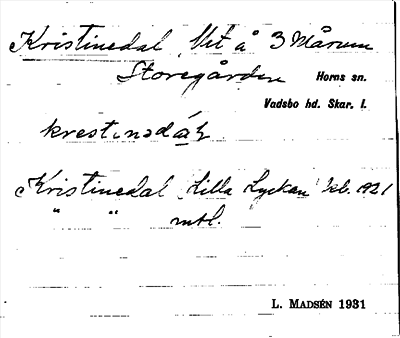 Kristinedal, Vst å 3 Mårum
Storegården Horns sn.
Vadsbo hd. Skar. l.
krestinədáɫ
Kristinedal (Lilla Lyckan) kb. 1921
" " mtl.
L. MADSÉN 1931